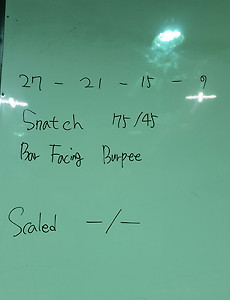 27 - 21 - 15 - 9
Snatch 75/45
Bar Facing Burpee
Scaled -/-